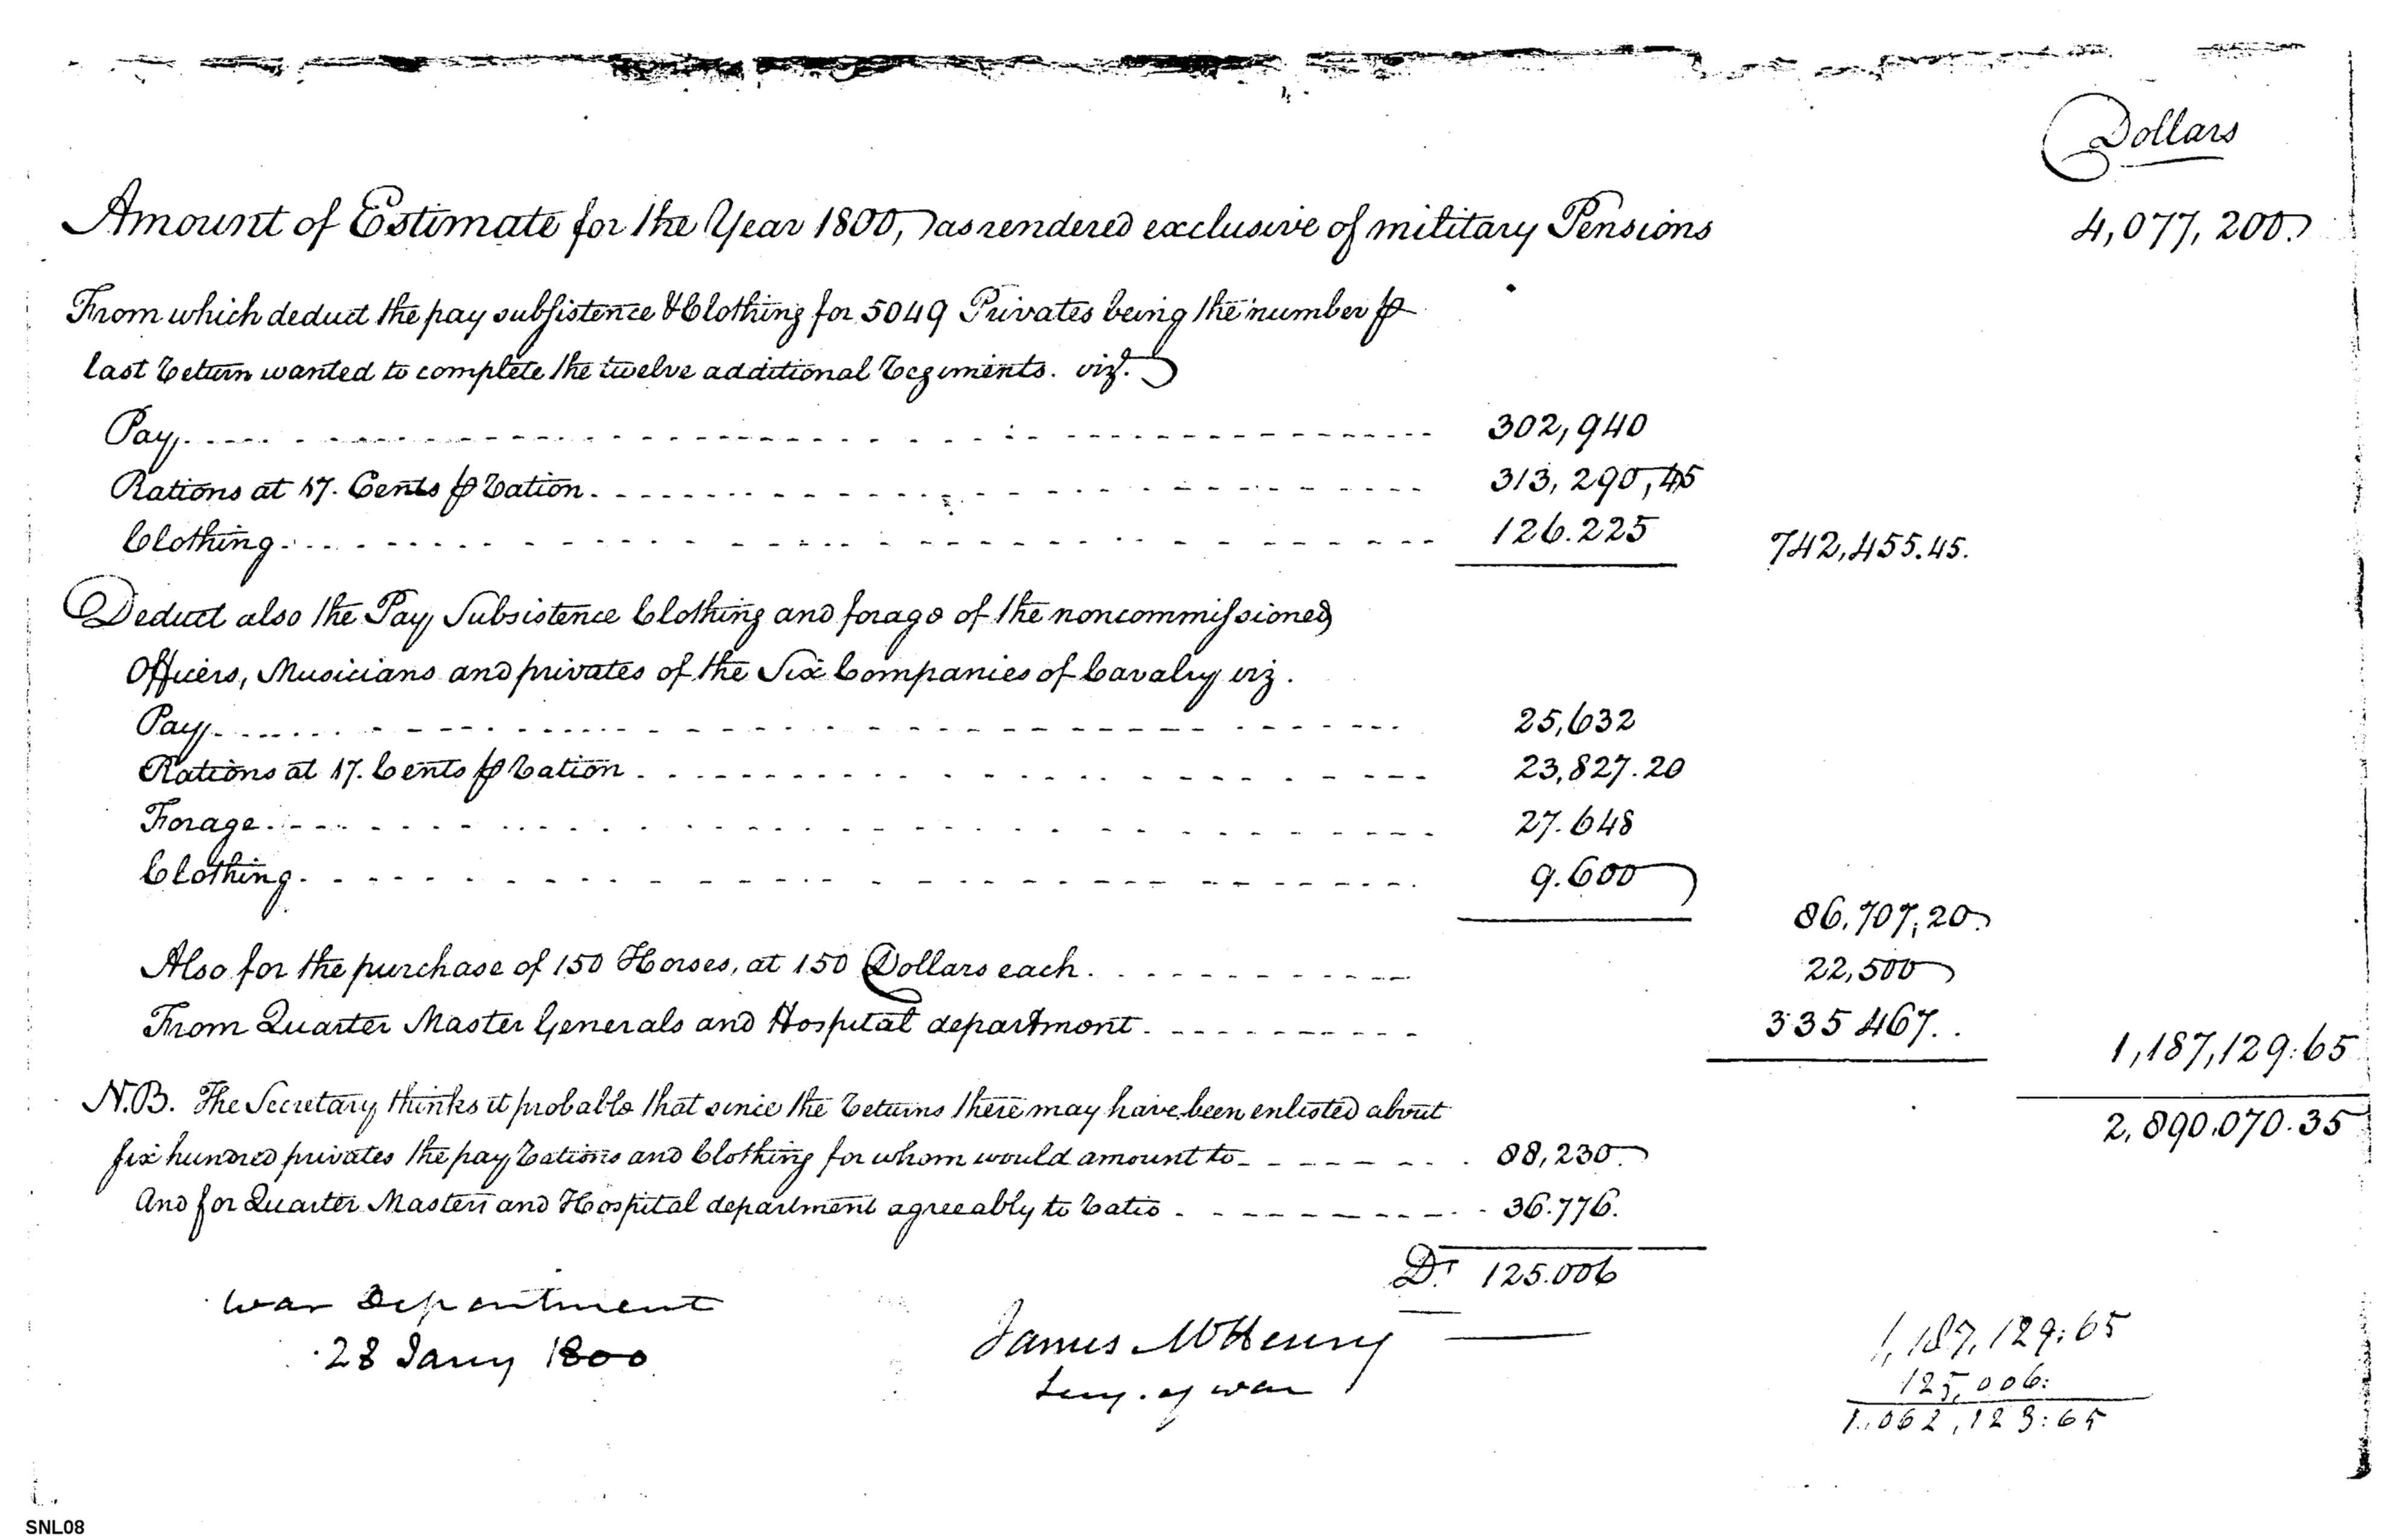 Dollars
Amount of Estimate for the Year 1800, as rendered exclusive of military Pensions 4,077,200.
From which deduct the pay subsistence & Clothing for 5049 Privates being the number ⅌
last return wanted to complete the twelve additional regiments. viz.
Pay 302,940
Rations at 17. Cents ⅌ ration. 313,290,45
Clothing 126.225 742,455.45.
Deduct also the Pay Subsistence Clothing and forage of the noncommissioned
Officers, Musicians and privates of the Six Companies of Cavalry viz.
Pay 25,632
Rations at 17. Cents ⅌ ration 23,827.20
Forage 27.648
Clothing 9.600
86,707,20.
Also for the purchase of 150 Horses, at 150 Dollars each. 22,500
From Quarter Master Generals and Hospital department. 335467.. 1,187,129:65
N.B. The Secretary thinks it probable that since the returns there may have been enlisted about
2,890.070.35
six hundred privates the pay rations and Clothing for whom would amount to 88,230.
And for Quarter Masters and Hospital department agreeably to ratio 36.776.
Dr 125.006
War Department
28 Jany 1800
James McHenry
Secy. of war
1,187,129:65
125,006:
1.062,123:65
SNL08